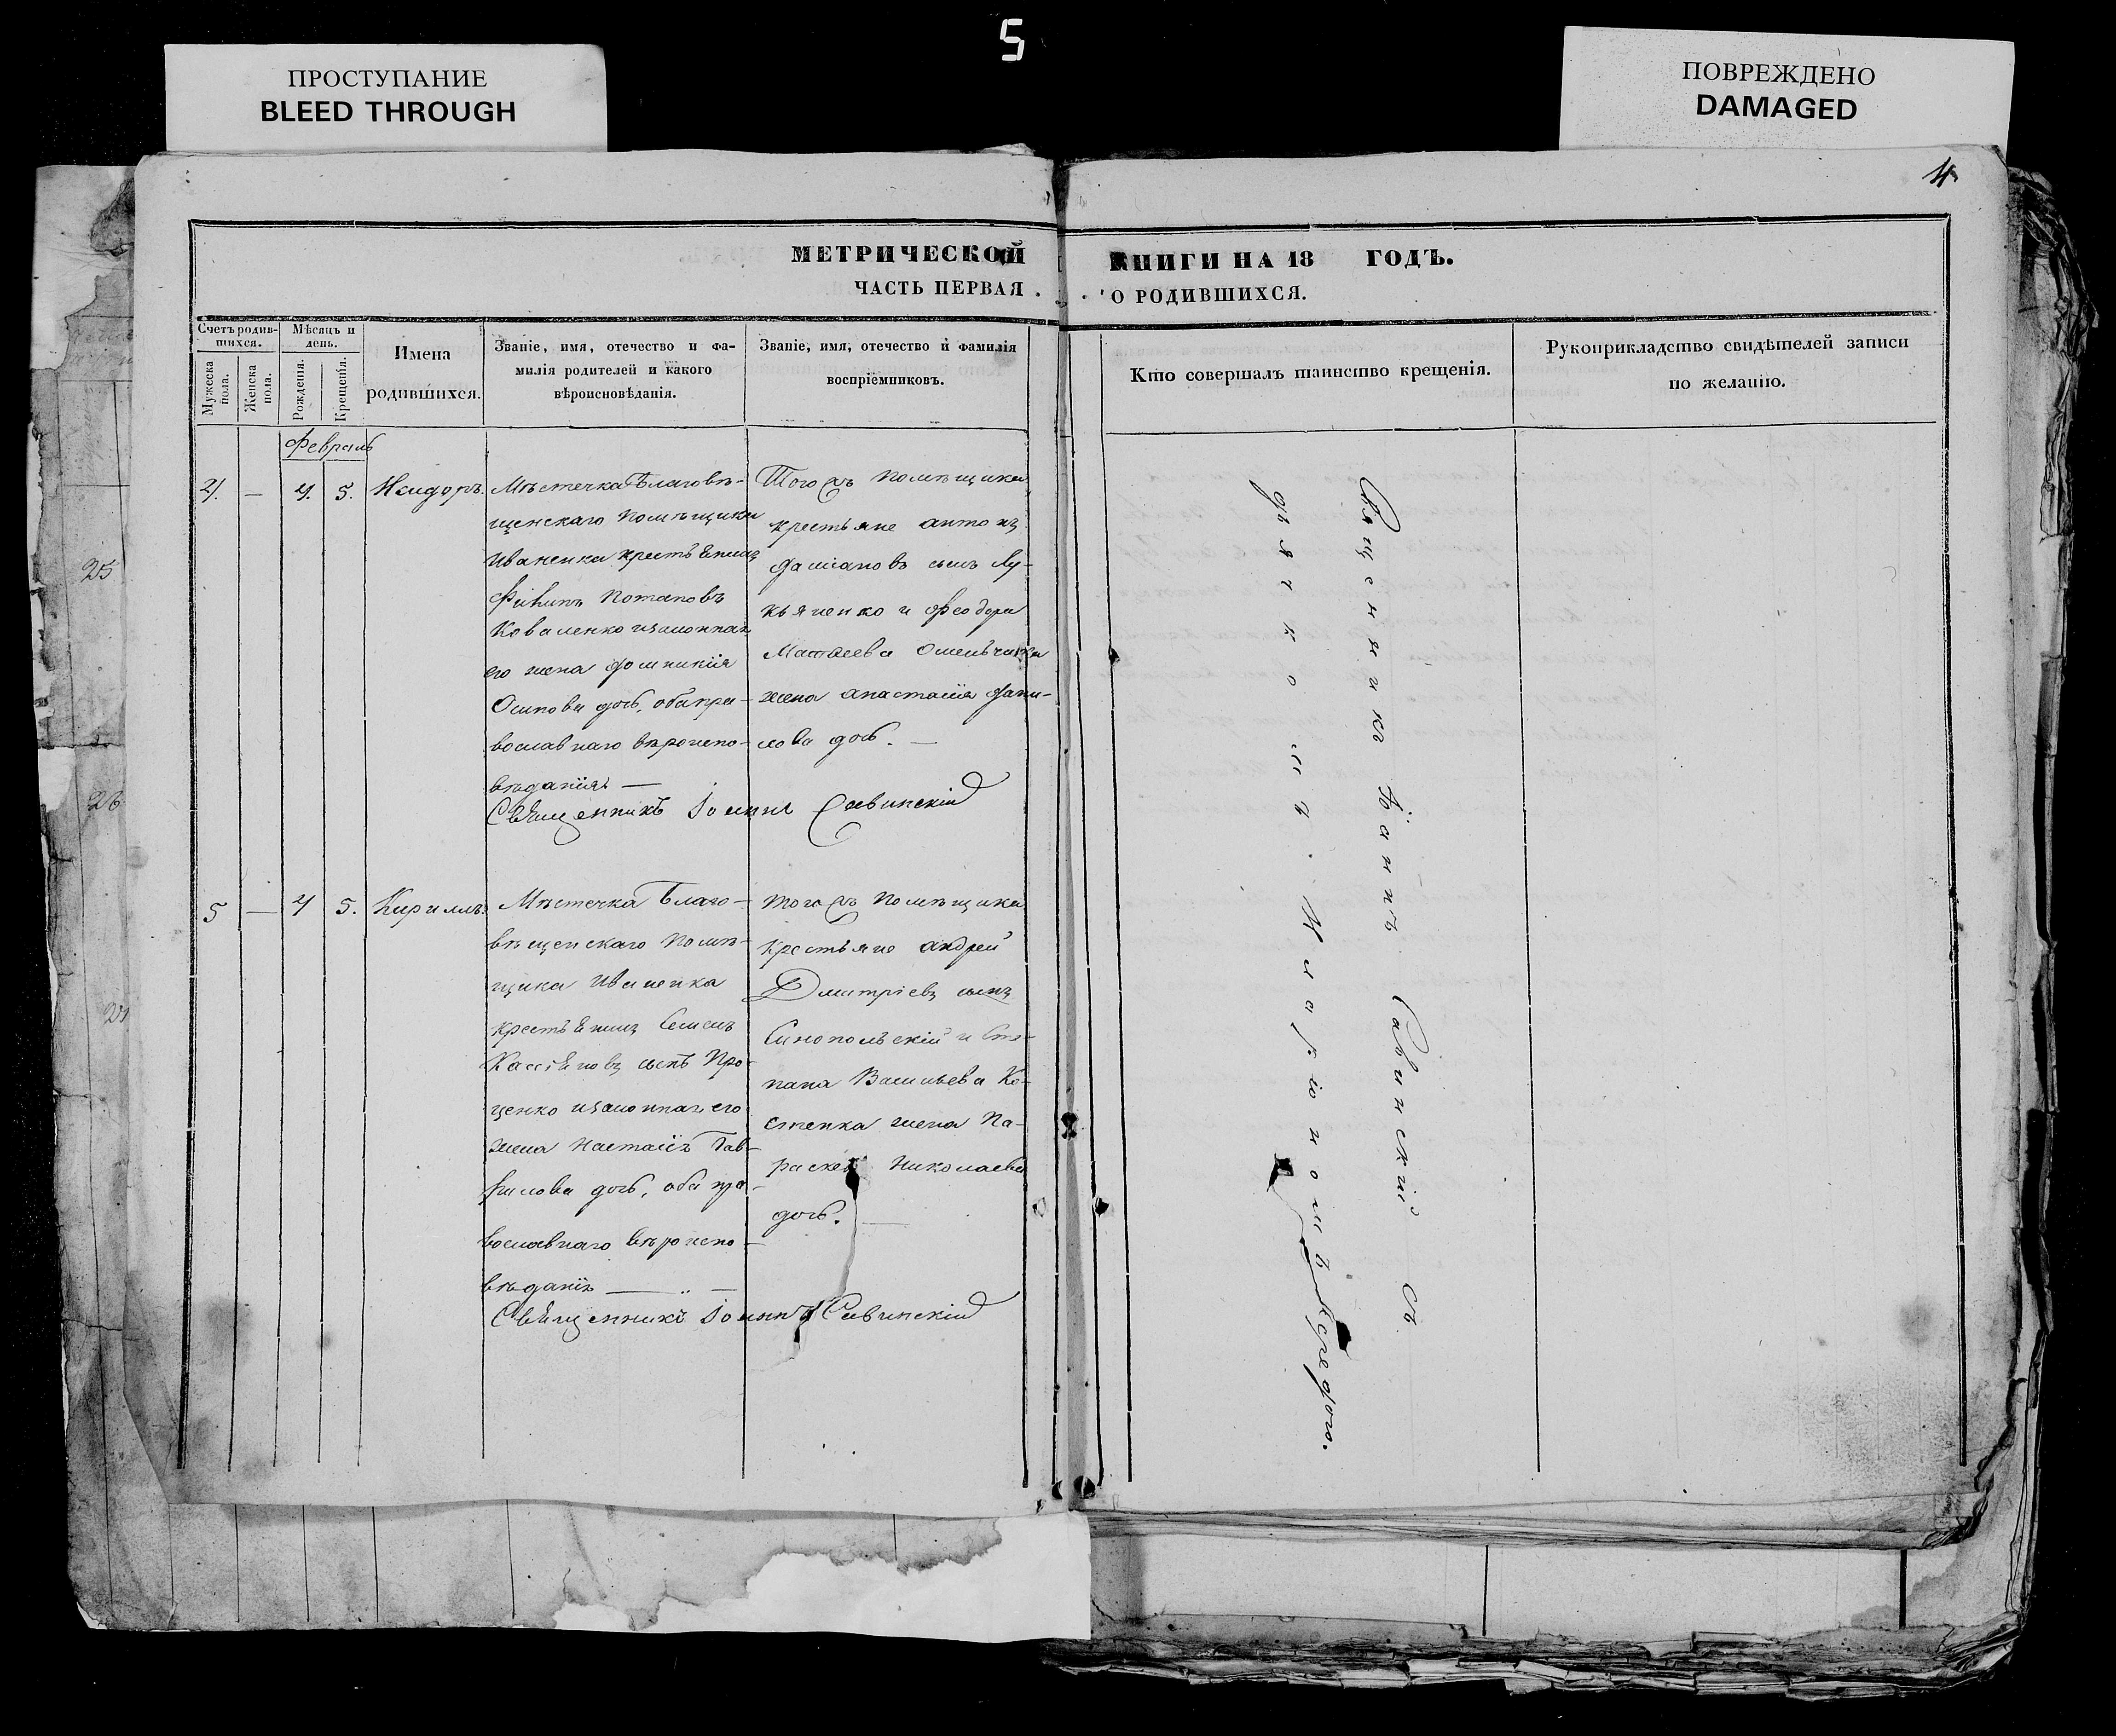 5
ПРОСТУПАНИЕ
BLEED THROUGH
ПОВРЕЖДЕНО
DAMAGED
4
МЕТРИЧЕСКОЙ КНИГИ НА 18 ГОДЪ.
ЧАСТЬ ПЕРВАЯ. О РОДИВШИХСЯ.
Счетъ родив-
шихся.
Мужеска
пола.
Женска
пола.
Мѣсяцъ и
день.
Рожденія.
Крещенія.
Имена
родившихся.
Званіе, имя, отечество и фа-
милія родителей и какого
вѣроисповѣданія.
Званіе, имя, отечество и фамилія
воспріемниковъ.
Кто совершалъ таинство крещенія.
Рукоприкладство свидѣтелей записи
по желанію.
Февраль
4. — 4. 5. Исидоръ.
Мѣстечка Благовѣ-
щенскаго помѣщика
Иваненка крестьянинъ
Потаповъ
Коваленко изаконная
его жена Домникія
Осипова дочь, оба пра-
вославнаго вѣроиспо-
вѣданія —
Тогожъ помѣщика
крестьяне Антонъ
Даміановъ сынъ Лу-
кьяненко и Феодора
Матвеева Омельченка
жена Анастасія Дани-
лова дочь. —
Священникъ Іоаннъ Савинскій
5 — 4 5. Кириллъ.
Мѣстечка Благо-
вѣщенскаго помѣ-
щика Иваненка
крестьянинъ Семенъ
Кассіановъ сынъ Про-
ценко изаконная его
жена Настасія Гав-
рилова дочь, оба пра-
вославнаго вѣроиспо-
вѣданія — „ —
тогожъ помѣщика
крестьяне Андрей
Дмитріевъ сынъ
Синопольскій и Сте-
пана Васильева Ко-
стенка жена Па-
раскева Николаева
дочь. —
Священникъ Іоаннъ Савинскій
Священникъ Іоаннъ Савинскій съ
дьячкомъ Иларіономъ
25
26